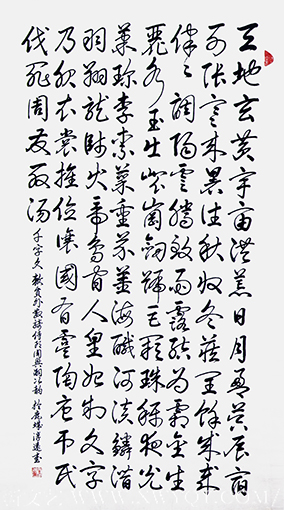 天地玄黄宇宙洪荒日月盈昃辰宿
列張寒来暑往秋收冬藏閏餘成歲
律呂調陽雲騰致雨露結為霜金生
麗水玉出崑崗劍號巨闕珠稱夜光
菓珍李柰菜重芥薑海鹹河淡鱗潛
羽翔龍師火帝鳥官人皇始制文字
乃服衣裳推位讓國有虞陶唐弔民
伐罪周發殷湯
千字文 敕員外散騎侍郎周興嗣次韻